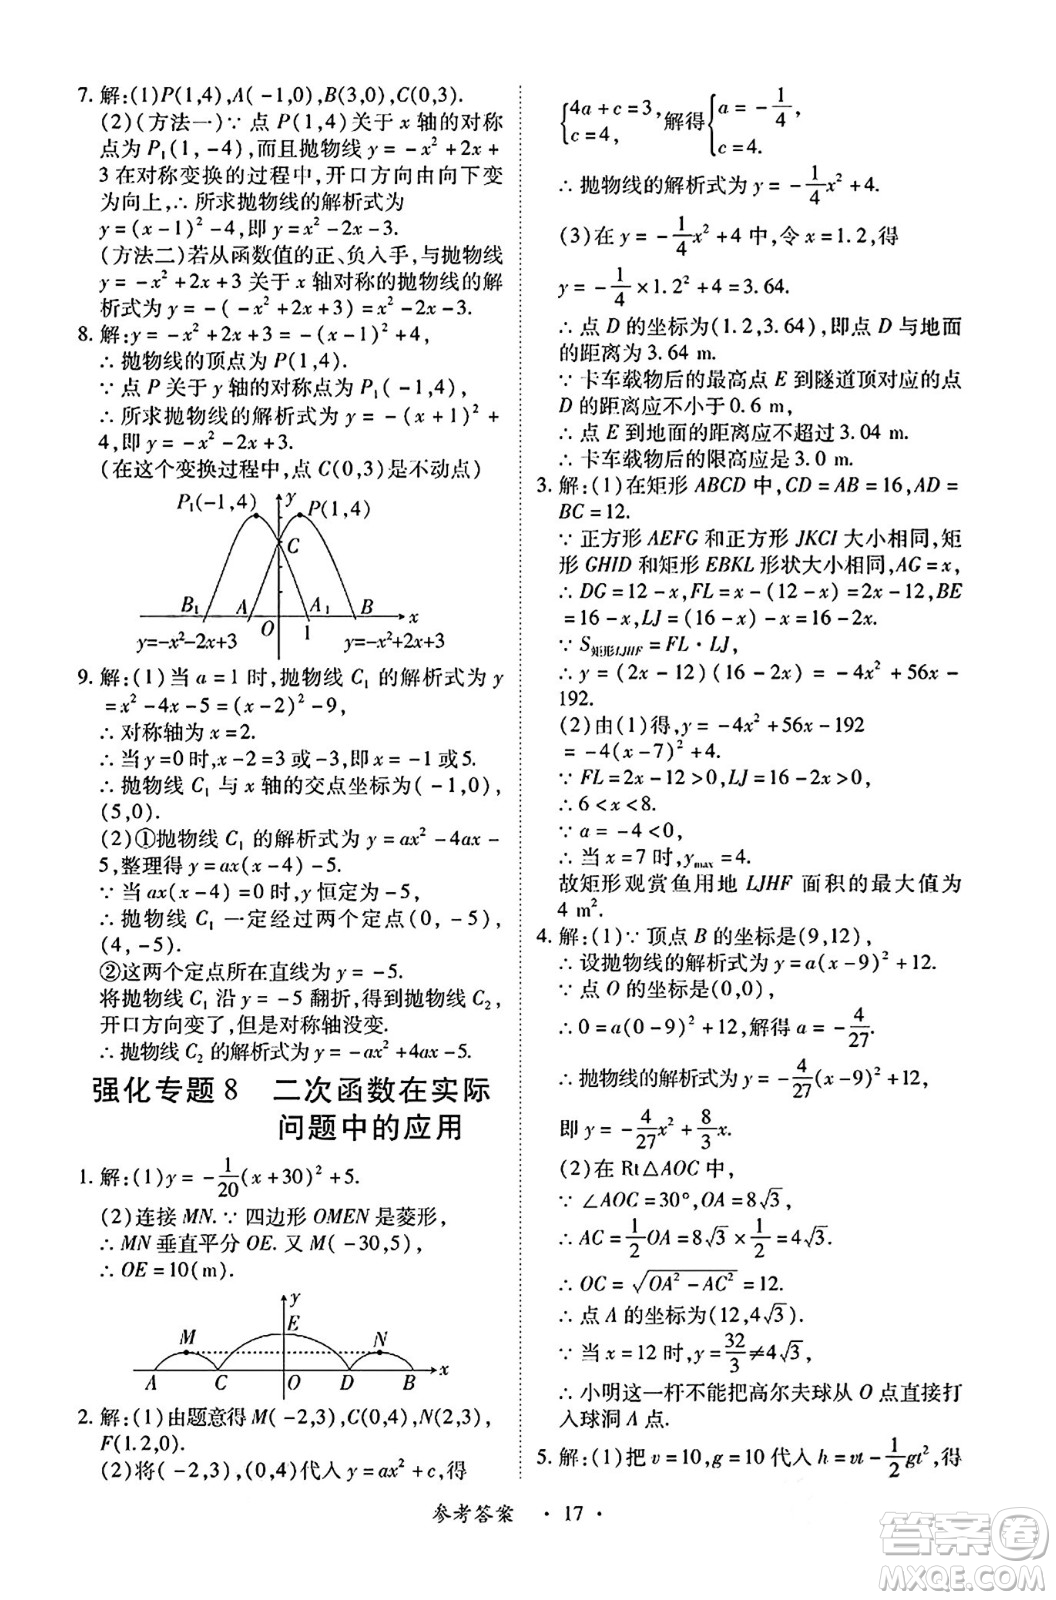 7. 解:(1)P(1,4),A(-1,0),B(3,0),C(0,3).
(2)(方法一)∵ 点 P(1,4)关于 x 轴的对称
点为 P₁(1,-4),而且抛物线 y=-x²+2x+
3 在对称变换的过程中,开口方向由向下变
为向上,∴ 所求抛物线的解析式为
y=(x-1)²-4,即 y=x²-2x-3.
(方法二)若从函数值的正、负入手,与抛物线
y=-x²+2x+3 关于 x 轴对称的抛物线的解
析式为 y=-(-x²+2x+3)=x²-2x-3.
8. 解:y=-x²+2x+3=-(x-1)²+4,
∴ 抛物线的顶点为 P(1,4).
∴ 点 P 关于 y 轴的对称点为 P₁(-1,4),
∴ 所求抛物线的解析式为 y=-(x+1)²+
4,即 y=-x²-2x+3.
(在这个变换过程中,点 C(0,3)是不动点)
P₁(-1,4) y P(1,4)
C
B₁ A A₁ B x
O 1
y=-x²-2x+3 y=-x²+2x+3
9. 解:(1)当 a=1 时,抛物线 C₁ 的解析式为 y
=x²-4x-5=(x-2)²-9,
∴ 对称轴为 x=2.
∴ 当 y=0 时,x-2=3 或-3,即 x=-1 或 5.
∴ 抛物线 C₁ 与 x 轴的交点坐标为(-1,0),
(5,0).
(2)①抛物线 C₁ 的解析式为 y=ax²-4ax-
5,整理得 y=ax(x-4)-5.
∵ 当 ax(x-4)=0 时,y 恒定为-5,
∴ 抛物线 C₁ 一定经过两个定点(0,-5),
(4,-5).
②这两个定点所在直线为 y=-5.
将抛物线 C₁ 沿 y=-5 翻折,得到抛物线 C₂,
开口方向变了,但是对称轴没变.
∴ 抛物线 C₂ 的解析式为 y=-ax²+4ax-5.
强化专题 8 二次函数在实际
问题中的应用
1. 解:(1)y=-1/20(x+30)²+5.
(2)连接 MN.∵ 四边形 OMEN 是菱形,
∴ MN 垂直平分 OE.又 M(-30,5),
∴ OE=10(m).
y
M E N
A C O D B x
2. 解:(1)由题意得 M(-2,3),C(0,4),N(2,3),
F(1.2,0).
(2)将(-2,3),(0,4)代入 y=ax²+c,得
{4a+c=3, c=4, 解得{a=-1/4, c=4.
∴ 抛物线的解析式为 y=-1/4x²+4.
(3)在 y=-1/4x²+4 中,令 x=1.2,得
y=-1/4×1.2²+4=3.64.
∴ 点 D 的坐标为(1.2,3.64),即点 D 与地面
的距离为 3.64 m.
∵ 卡车载物后的最高点 E 到隧道顶对应的点
D 的距离应不小于 0.6 m,
∴ 点 E 到地面的距离应不超过 3.04 m.
∴ 卡车载物后的限高应是 3.0 m.
3. 解:(1)在矩形 ABCD 中,CD=AB=16,AD=
BC=12.
∵ 正方形 AEFG 和正方形 JKCI 大小相同,矩
形 GHID 和矩形 EBKL 形状大小相同,AG=x,
∴ DG=12-x,FL=x-(12-x)=2x-12,BE
=16-x,LJ=(16-x)-x=16-2x.
∵ S矩形LJHF=FL·LJ,
∴ y=(2x-12)(16-2x)=-4x²+56x-
192.
(2)由(1)得,y=-4x²+56x-192
=-4(x-7)²+4.
∵ FL=2x-12>0,LJ=16-2x>0,
∴ 6<x<8.
∵ a=-4<0,
∴ 当 x=7 时,yₘₐₓ=4.
故矩形观赏鱼用地 LJHF 面积的最大值为
4 m².
4. 解:(1)∵ 顶点 B 的坐标是(9,12),
∴ 设抛物线的解析式为 y=a(x-9)²+12.
∵ 点 O 的坐标是(0,0),
∴ 0=a(0-9)²+12,解得 a=-4/27.
∴ 抛物线的解析式为 y=-4/27(x-9)²+12,
即 y=-4/27x²+8/3x.
(2)在 Rt△AOC 中,
∵ ∠AOC=30°,OA=8√3,
∴ AC=1/2OA=8√3×1/2=4√3.
∴ OC=√(OA²-AC²)=12.
∴ 点 A 的坐标为(12,4√3).
∵ 当 x=12 时,y=32/3≠4√3,
∴ 小明这一杆不能把高尔夫球从 O 点直接打
入球洞 A 点.
5. 解:(1)把 v=10,g=10 代入 h=vt-1/2gt²,得
参考答案 · 17 ·
答案圈
MXQE.COM